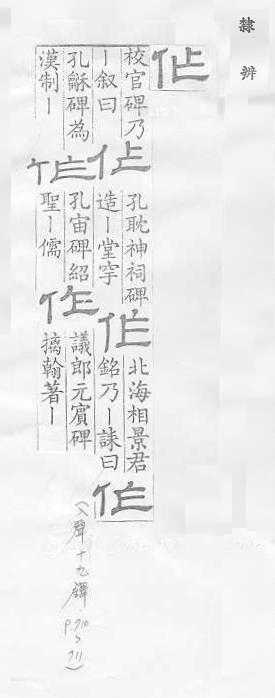 隸辨
作
校官碑乃
丨叙曰
作
孔耽神祠碑
造丨堂宇
作
北海相景君
銘乃丨誄曰
作
孔龢碑為
漢制丨
作
孔宙碑紹
聖丨儒
作
議郎元賓碑
摛翰著丨
(入聲十九鐸 p.710~711)